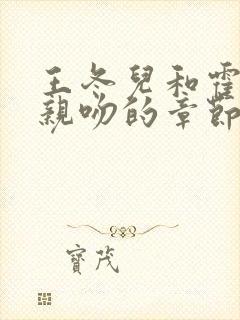 王冬兒和霍
親吻的章節
寶茂